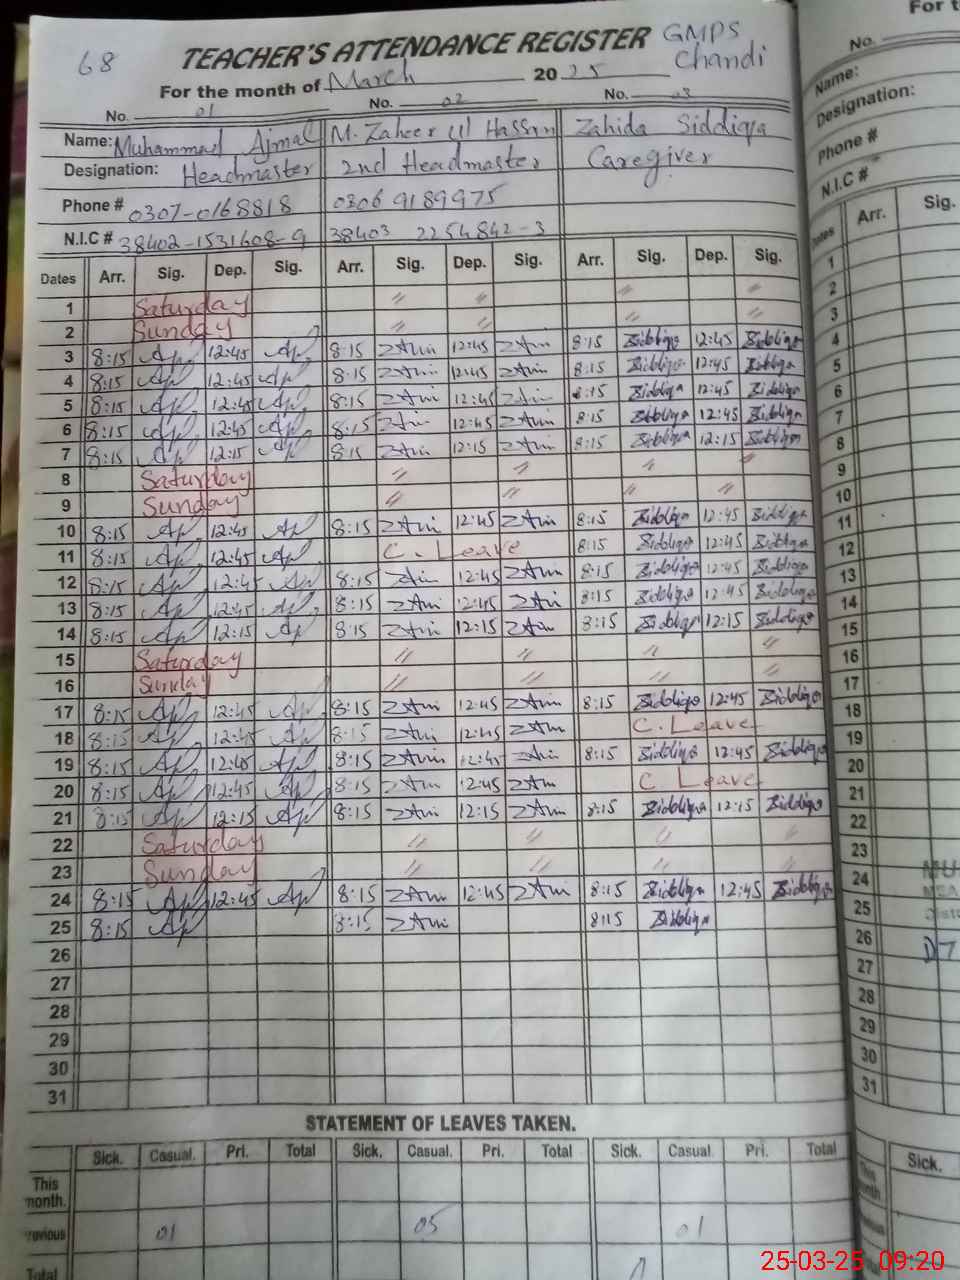 68
TEACHER'S ATTENDANCE REGISTER GMPS
Chandi
For the month of March 2025
No. 01 No. 02 No. 03
Name: Muhammad Ajmal M. Zaheer Ul Hassan Zahida Siddiqa
Designation: Headmaster 2nd Headmaster Caregiver
Phone # 0307-0168818 0306 9189975
N.I.C # 38402-1531608-9 38403 2254842-3
Dates Arr. Sig. Dep. Sig. Arr. Sig. Dep. Sig. Arr. Sig. Dep. Sig.
1 Saturday " " " "
2 Sunday " " " "
3 8:15 12:45 8:15 12:45 8:15 Siddiqa 12:45 Siddiqa
4 8:15 12:45 8:15 12:45 8:15 Siddiqa 12:45 Siddiqa
5 8:15 12:45 8:15 12:45 8:15 Siddiqa 12:45 Siddiqa
6 8:15 12:45 8:15 12:45 8:15 Siddiqa 12:45 Siddiqa
7 8:15 12:15 8:15 12:15 8:15 Siddiqa 12:15 Siddiqa
8 Saturday " " " "
9 Sunday " " " "
10 8:15 12:45 8:15 12:45 8:15 Siddiqa 12:45 Siddiqa
11 8:15 12:45 C. Leave 8:15 Siddiqa 12:45 Siddiqa
12 8:15 12:45 8:15 12:45 8:15 Siddiqa 12:45 Siddiqa
13 8:15 12:45 8:15 12:45 8:15 Siddiqa 12:45 Siddiqa
14 8:15 12:15 8:15 12:15 8:15 Siddiqa 12:15 Siddiqa
15 Saturday " " " "
16 Sunday " " " "
17 8:15 12:45 8:15 12:45 8:15 Siddiqa 12:45 Siddiqa
18 8:15 12:45 8:15 12:45 C. Leave
19 8:15 12:45 8:15 12:45 8:15 Siddiqa 12:45 Siddiqa
20 8:15 12:45 8:15 12:45 C Leave
21 8:15 12:15 8:15 12:15 8:15 Siddiqa 12:15 Siddiqa
22 Saturday " " " "
23 Sunday " " " "
24 8:15 12:45 8:15 12:45 8:15 Siddiqa 12:45 Siddiqa
25 8:15 8:15 8:15 Siddiqa
26
27
28
29
30
31
STATEMENT OF LEAVES TAKEN.
Sick. Casual. Pri. Total Sick. Casual. Pri. Total Sick. Casual. Pri. Total
This month.
revious 01 05 01
Total
For t
No.
Name:
Designation:
Phone #
N.I.C #
Dates Arr. Sig.
1
2
3
4
5
6
7
8
9
10
11
12
13
14
15
16
17
18
19
20
21
22
23
24
25
26
27
28
29
30
31
Sick.
This month
Total
25-03-25 09:20